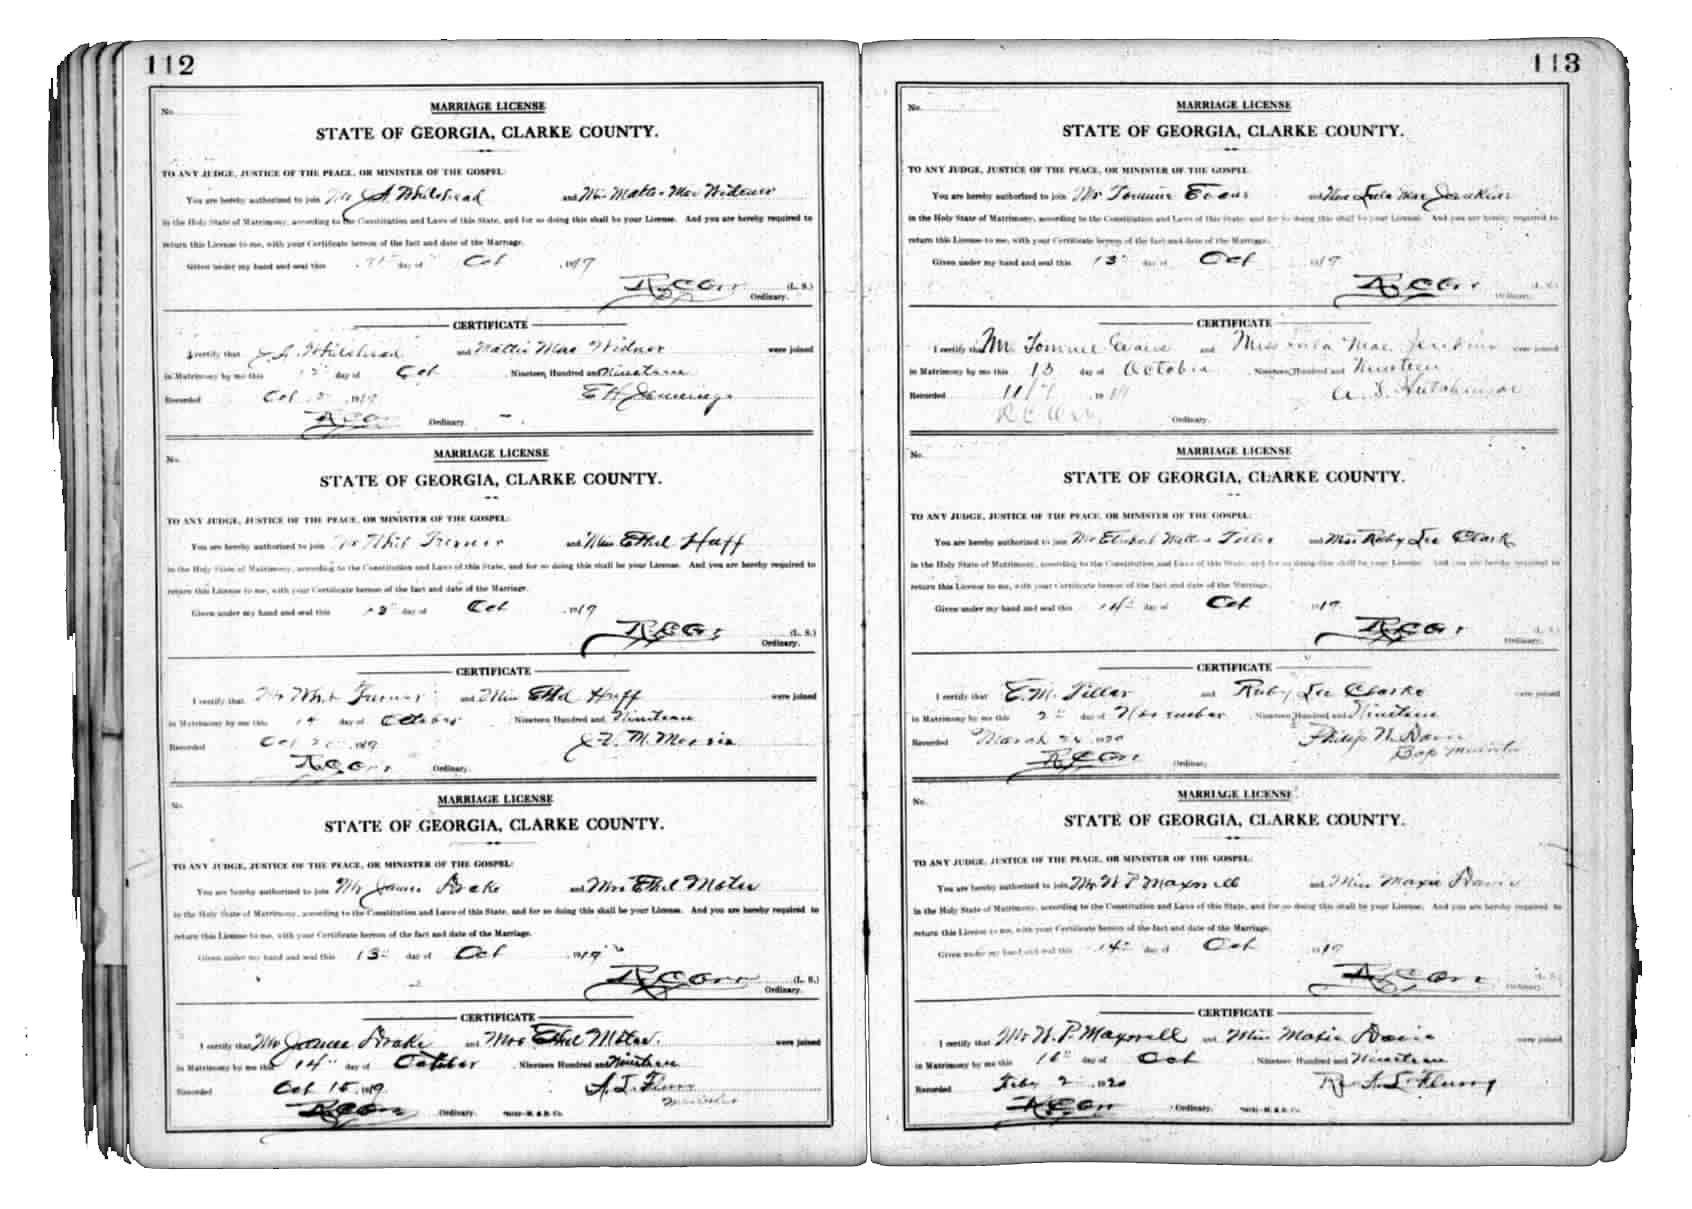 112
No.
MARRIAGE LICENSE
STATE OF GEORGIA, CLARKE COUNTY.
TO ANY JUDGE, JUSTICE OF THE PEACE, OR MINISTER OF THE GOSPEL:
You are hereby authorized to join J. A. Whitehead and Miss Mattie Mae Widener
in the Holy State of Matrimony, according to the Constitution and Laws of this State, and for so doing this shall be your License. And you are hereby required to
return this License to me, with your Certificate hereon of the fact and date of the Marriage.
Given under my hand and seal this day of Oct 1919
R C Orr (L. S.)
Ordinary.
CERTIFICATE
I certify that J. A. Whitehead and Mattie Mae Widner were joined
in Matrimony by me this day of Oct, Nineteen Hundred and Nineteen
Recorded Oct 1919 E H Jennings
R C Orr Ordinary.
No.
MARRIAGE LICENSE
STATE OF GEORGIA, CLARKE COUNTY.
TO ANY JUDGE, JUSTICE OF THE PEACE, OR MINISTER OF THE GOSPEL:
You are hereby authorized to join and Miss Ethel Huff
in the Holy State of Matrimony, according to the Constitution and Laws of this State, and for so doing this shall be your License. And you are hereby required to
return this License to me, with your Certificate hereon of the fact and date of the Marriage.
Given under my hand and seal this day of Oct 1919
R C Orr (L. S.)
Ordinary.
CERTIFICATE
I certify that and Miss Ethel Huff were joined
in Matrimony by me this 14 day of October Nineteen Hundred and Nineteen
Recorded Oct 1919 M. Morris
R C Orr Ordinary.
No.
MARRIAGE LICENSE
STATE OF GEORGIA, CLARKE COUNTY.
TO ANY JUDGE, JUSTICE OF THE PEACE, OR MINISTER OF THE GOSPEL:
You are hereby authorized to join Mr James Drake and Mrs Ethel
in the Holy State of Matrimony, according to the Constitution and Laws of this State, and for so doing this shall be your License. And you are hereby required to
return this License to me, with your Certificate hereon of the fact and date of the Marriage.
Given under my hand and seal this 13 day of Oct 1919
R C Orr (L. S.)
Ordinary.
CERTIFICATE
I certify that Mr James Drake and Mrs Ethel were joined
in Matrimony by me this 14 day of October, Nineteen Hundred and Nineteen
Recorded Oct 15 1919
R C Orr Ordinary.
113
No.
MARRIAGE LICENSE
STATE OF GEORGIA, CLARKE COUNTY.
TO ANY JUDGE, JUSTICE OF THE PEACE, OR MINISTER OF THE GOSPEL:
You are hereby authorized to join Mr Tommie Evans and Miss Lula Mae Jenkins
in the Holy State of Matrimony, according to the Constitution and Laws of this State, and for so doing this shall be your License. And you are hereby required to
return this License to me, with your Certificate hereon of the fact and date of the Marriage.
Given under my hand and seal this 13 day of Oct 1919
R C Orr (L. S.)
Ordinary.
CERTIFICATE
I certify that Mr. Tommie and Miss Lula Mae Jenkins were joined
in Matrimony by me this 13 day of October, Nineteen Hundred and Nineteen
Recorded 11/7 1919 A. S. Hutchinson
R C Orr Ordinary.
No.
MARRIAGE LICENSE
STATE OF GEORGIA, CLARKE COUNTY.
TO ANY JUDGE, JUSTICE OF THE PEACE, OR MINISTER OF THE GOSPEL:
You are hereby authorized to join Mr and Miss Ruby Lee Clark
in the Holy State of Matrimony, according to the Constitution and Laws of this State, and for so doing this shall be your License. And you are hereby required to
return this License to me, with your Certificate hereon of the fact and date of the Marriage.
Given under my hand and seal this 14 day of Oct 1919
R C Orr (L. S.)
Ordinary.
CERTIFICATE
I certify that E. M. Tiller and Ruby Lee Clarke were joined
in Matrimony by me this 2 day of November, Nineteen Hundred and Nineteen
Recorded March 24 1920 Philip W. Davis
R C Orr Ordinary. Bap Minister
No.
MARRIAGE LICENSE
STATE OF GEORGIA, CLARKE COUNTY.
TO ANY JUDGE, JUSTICE OF THE PEACE, OR MINISTER OF THE GOSPEL:
You are hereby authorized to join Mr W P Maxwell and Miss Maxie Davis
in the Holy State of Matrimony, according to the Constitution and Laws of this State, and for so doing this shall be your License. And you are hereby required to
return this License to me, with your Certificate hereon of the fact and date of the Marriage.
Given under my hand and seal this 14 day of Oct 1919
R C Orr (L. S.)
Ordinary.
CERTIFICATE
I certify that Mr W. P. Maxwell and Miss Maxie Davis were joined
in Matrimony by me this 16 day of Oct, Nineteen Hundred and Nineteen
Recorded Feby 2 1920
R C Orr Ordinary.